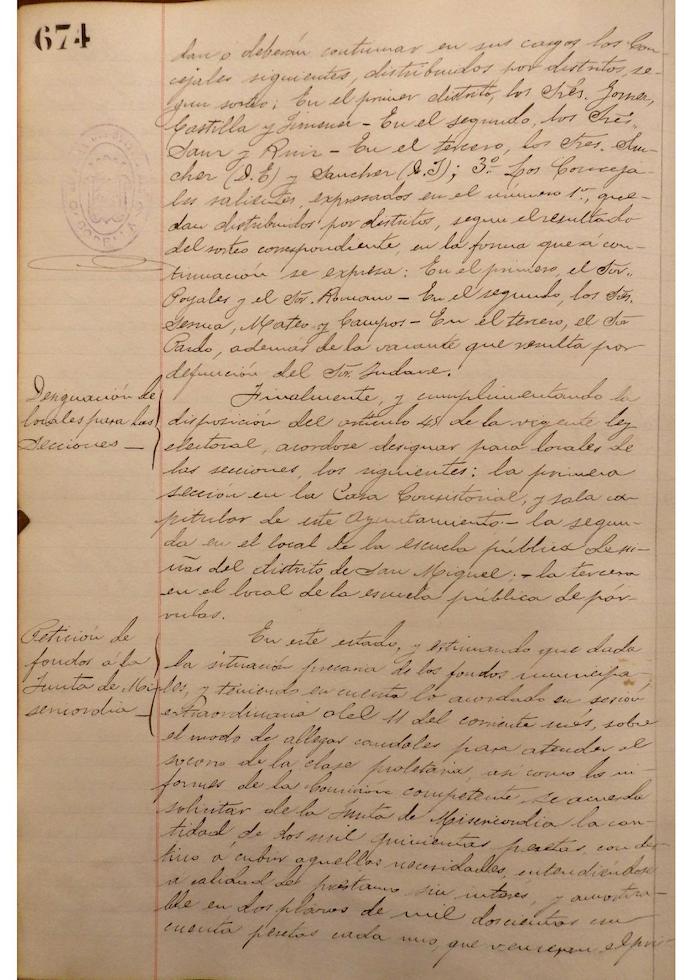 674
dan o deberán continuar en sus cargos los Con-
cejales siguientes, distribuidos por distritos, se-
gun sorteo: En el primer distrito, los Sres. Gomez,
Castilla y Jimenez - En el segundo, los Sres.
Sanz y Ruiz - En el tercero, los Sres. Sán-
chez (D. E) y Sanchez (D. J); 3º Los Conceja-
les salientes, expresados en el número 1º, que-
dan distribuidos por distritos, segun el resultado
del sorteo correspondiente, en la forma que a con-
tinuación se expresa: En el primero, el Sor.
Poyales y el Sor. Romano - En el segundo, los Sres.
Serma, Mateo y Campos - En el tercero, el Sor
Pardo, además de la vacante que resulta por
defunción del Sor.
Designación de
locales para las
Secciones -
Finalmente, y cumplimentando la
disposición del artículo 45 de la vigente ley
electoral, acordose designar para locales de
las secciones, los siguientes: la primera
sección en la Casa Consistorial, y sala ca-
pitular de este Ayuntamiento - la segun-
da en el local de la escuela pública de ni-
ñas del distrito de San Miguel; - la tercera
en el local de la escuela pública de pár-
vulos.
Petición de
fondos á la
Junta de Mi-
sericordia -
En este estado, y estimando que dada
la situación precaria de los fondos municipa-
les, y teniendo en cuenta lo acordado en sesión
extraordinaria del 11 del corriente mes, sobre
el modo de allegar caudales para atender al
socorro de la clase proletaria, así como los in-
formes de la Comisión competente, se acuerda
solicitar de la Junta de Misericordia la can-
tidad de dos mil quinientas pesetas con des-
tino á cubrir aquellas necesidades, entendiéndose
á calidad de préstamo sin interes, y amortiza-
ble en dos plazos de mil doscientas cin-
cuenta pesetas cada uno, que vencerán el pri-